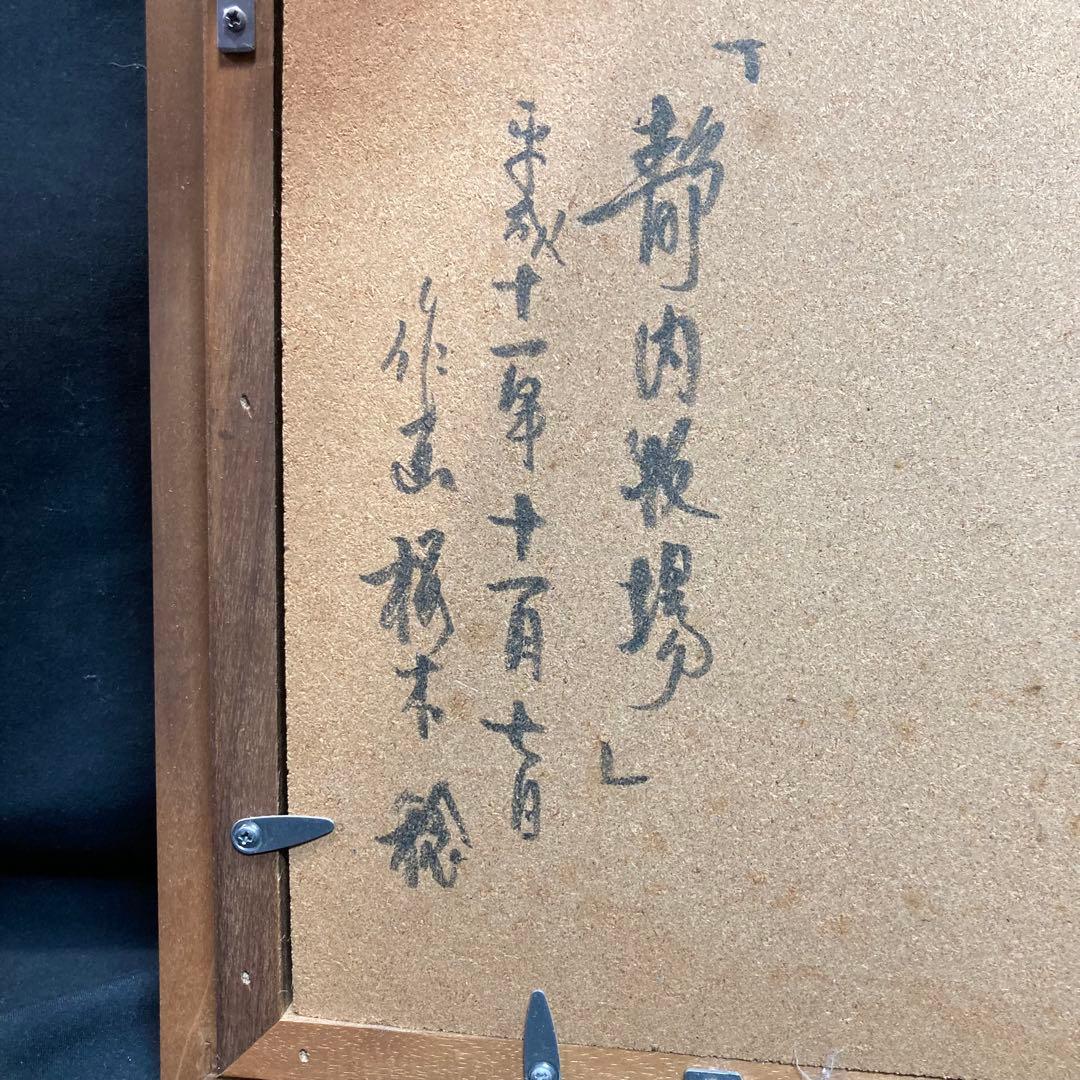 「静内牧場」
平成十一年十一月七日
作画 桜木 稔